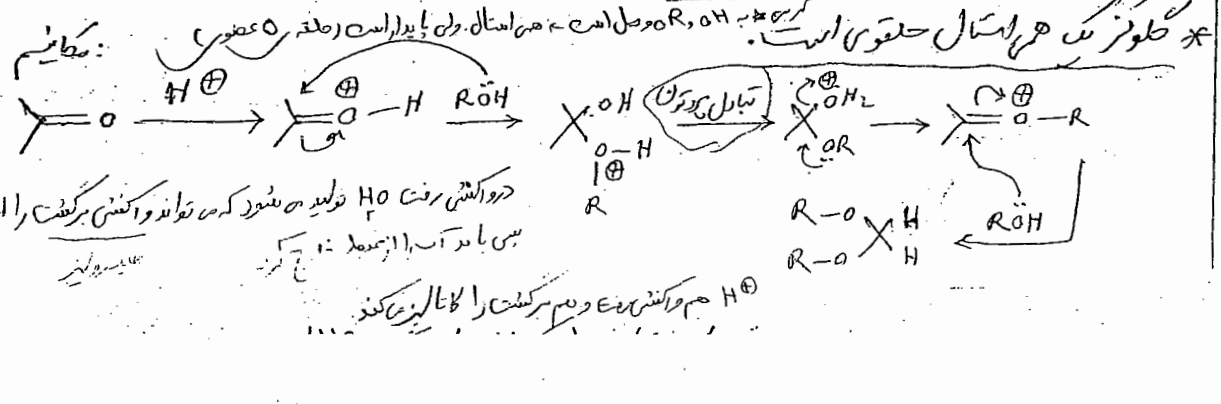 * گلوکز یک همی استال حلقوی است. کربن به OH و OR وصل است ← همی استال. ولی پایدار است (حلقه ی ۵ عضوی)
مکانیسم :
=O H⊕ =O⊕—H RÖH OH O—H ⊕ R تبادل پروتون ⊕OH₂ OR =O⊕—R
RÖH R—O R—O H H
در واکنش رفت H₂O تولید می شود که می تواند واکنش برگشت را
پس باید آب را از محیط خارج کرد.
هیدرولیز
H⊕ هم واکنش رفت و هم برگشت را کاتالیز می کند.